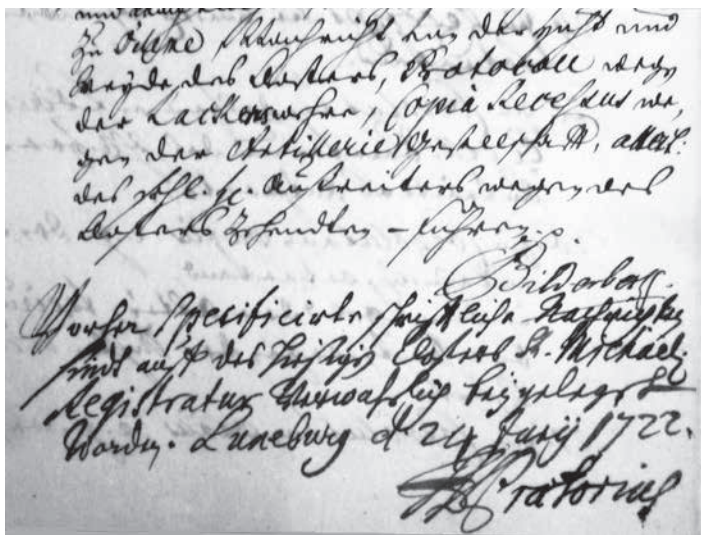 und
zu Oitzme, Nachricht von der Zucht und
Weyde des Closters, Protocoll wegen
der Lackenwehre, Copia Recessus we,
gen der Artillerie Gesellschafft, attest:
des sehl. H. Ausreiters wegen des
Closters Zehendten - führen. p.
Bilderbeck.
Vorher specificirte schrifftliche Nachrichten
sindt auff des hiesigen Closters St. Michael:
Registratur Verwahrlich beygeleget
Worden. Luneburg d 24 Junij 1722.
Prætorius